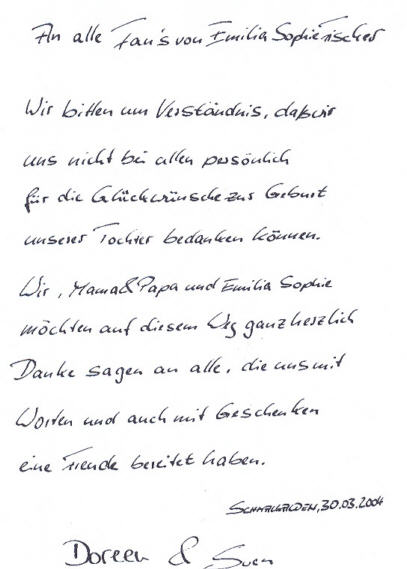 An alle Fan's von Emilia Sophie Fischer
Wir bitten um Verständnis, daß wir
uns nicht bei allen persönlich
für die Glückwünsche zur Geburt
unserer Tochter bedanken können.
Wir, Mama & Papa und Emilia Sophie
möchten auf diesem Weg ganz herzlich
Danke sagen an alle, die uns mit
Worten und auch mit Geschenken
eine Freude bereitet haben.
Schmalkalden, 30.03.2004
Doreen & Sven